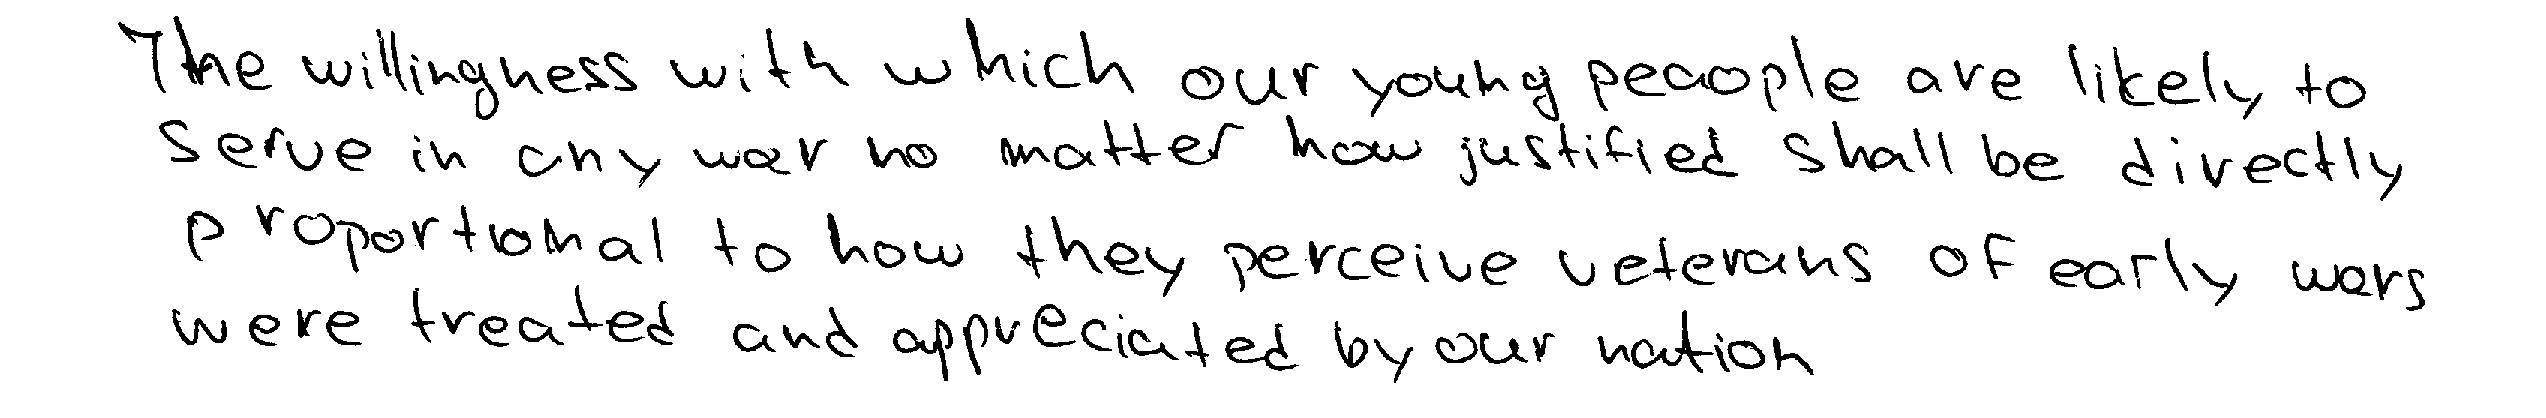 The willingness with which our young peaople are likely to
serve in any war no matter how justified shall be directly
proportional to how they perceive veterans of early wars
were treated and appreciated by our nation